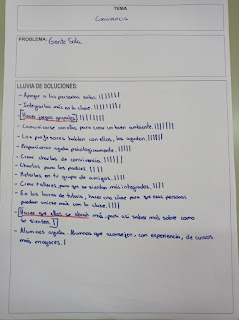 TEMA
Convivencia
PROBLEMA: Gente Sola
LLUVIA DE SOLUCIONES:
- Apoyar a las personas solas. ||||||||
- Integrarlas más en la clase. ||||||||
- Hacer juegos grupales. ||||||||
- Comunicarse con ellos, para crear un buen ambiente. ||||||
- Los profesores hablen con ellos, les ayuden. ||||||
- Proporcionar ayuda psicológicamente. ||||
- Crear charlas de convivencia. ||||||
- Charlas para los padres. ||||
- Meterlos en tu grupo de amigos. ||||
- Crear talleres, para que se sientan más integrados. ||||
- En las horas de tutoría, hacer una clase para que esas personas
puedan unirse más con la clase. ||||
- Hacer que ellos se abran más, para así saber más sobre como
se sienten. ||
- Alumnos ayuda. Alumnos que aconsejen, con experiencia, de cursos
más mayores. |